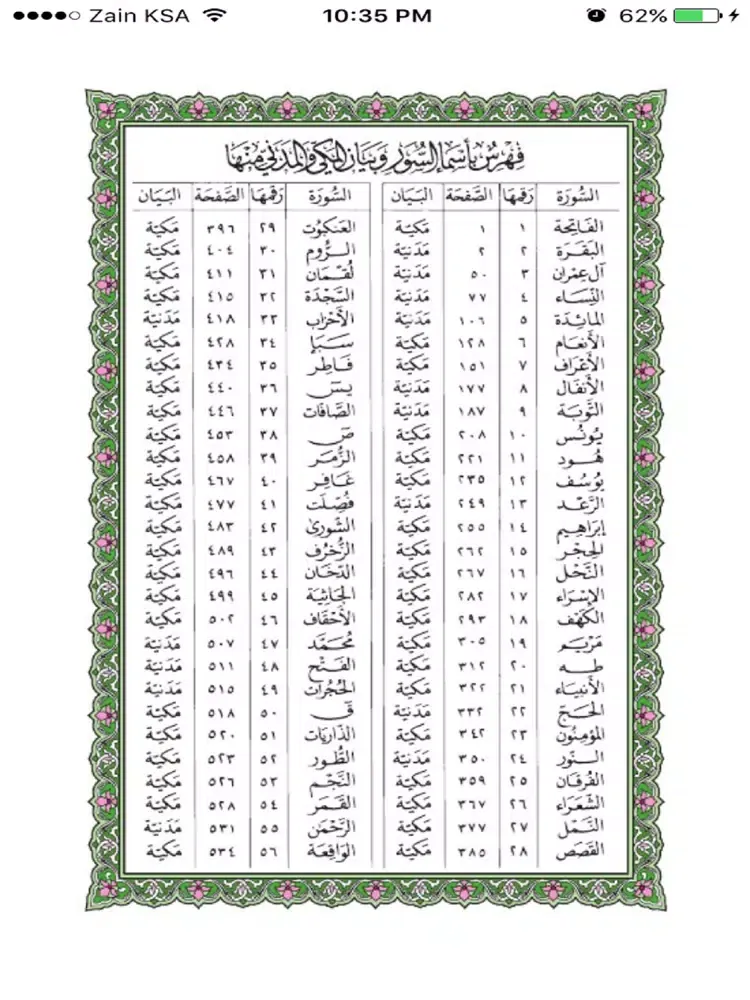 Zain KSA 10:35 PM 62%
فِهْرِسْ بِأَسْمَاءِ السُّوَرِ وَبَيَانِ المَكِّيِّ وَالمَدَنِيِّ مِنْهَا
السُّورَة رَقمهَا الصَّفحَة البَيَان
الفَاتِحَة ١ ١ مَكيّة
البَقَرَة ٢ ٢ مَدَنيّة
آل عِمرَان ٣ ٥٠ مَدَنيّة
النِّسَاء ٤ ٧٧ مَدَنيّة
المَائِدَة ٥ ١٠٦ مَدَنيّة
الأَنعَام ٦ ١٢٨ مَكيّة
الأَعْرَاف ٧ ١٥١ مَكيّة
الأَنفَال ٨ ١٧٧ مَدَنيّة
التَّوبَة ٩ ١٨٧ مَدَنيّة
يُونُس ١٠ ٢٠٨ مَكيّة
هُود ١١ ٢٢١ مَكيّة
يُوسُف ١٢ ٢٣٥ مَكيّة
الرَّعْد ١٣ ٢٤٩ مَدَنيّة
إبْرَاهِيم ١٤ ٢٥٥ مَكيّة
الحِجْر ١٥ ٢٦٢ مَكيّة
النَّحْل ١٦ ٢٦٧ مَكيّة
الإسْرَاء ١٧ ٢٨٢ مَكيّة
الكَهْف ١٨ ٢٩٣ مَكيّة
مَرْيَم ١٩ ٣٠٥ مَكيّة
طه ٢٠ ٣١٢ مَكيّة
الأَنبِيَاء ٢١ ٣٢٢ مَكيّة
الحَجّ ٢٢ ٣٣٢ مَدَنيّة
المُؤمِنُون ٢٣ ٣٤٢ مَكيّة
النُّور ٢٤ ٣٥٠ مَدَنيّة
الفُرْقَان ٢٥ ٣٥٩ مَكيّة
الشُّعَرَاء ٢٦ ٣٦٧ مَكيّة
النَّمْل ٢٧ ٣٧٧ مَكيّة
القَصَص ٢٨ ٣٨٥ مَكيّة
السُّورَة رَقمهَا الصَّفحَة البَيَان
العَنكَبُوت ٢٩ ٣٩٦ مَكيّة
الرُّوم ٣٠ ٤٠٤ مَكيّة
لُقْمَان ٣١ ٤١١ مَكيّة
السَّجْدَة ٣٢ ٤١٥ مَكيّة
الأَحْزَاب ٣٣ ٤١٨ مَدَنيّة
سَبَإ ٣٤ ٤٢٨ مَكيّة
فَاطِر ٣٥ ٤٣٤ مَكيّة
يسٓ ٣٦ ٤٤٠ مَكيّة
الصَّافات ٣٧ ٤٤٦ مَكيّة
صٓ ٣٨ ٤٥٣ مَكيّة
الزُّمَر ٣٩ ٤٥٨ مَكيّة
غَافِر ٤٠ ٤٦٧ مَكيّة
فُصِّلَت ٤١ ٤٧٧ مَكيّة
الشُّورَىٰ ٤٢ ٤٨٣ مَكيّة
الزُّخْرُف ٤٣ ٤٨٩ مَكيّة
الدّخَان ٤٤ ٤٩٦ مَكيّة
الجَاثِيَة ٤٥ ٤٩٩ مَكيّة
الأَحْقَاف ٤٦ ٥٠٢ مَكيّة
مُحَمَّد ٤٧ ٥٠٧ مَدَنيّة
الفَتْح ٤٨ ٥١١ مَدَنيّة
الحُجُرَات ٤٩ ٥١٥ مَدَنيّة
قٓ ٥٠ ٥١٨ مَكيّة
الذَّارِيَات ٥١ ٥٢٠ مَكيّة
الطُّور ٥٢ ٥٢٣ مَكيّة
النَّجْم ٥٣ ٥٢٦ مَكيّة
القَمَر ٥٤ ٥٢٨ مَكيّة
الرَّحْمٰن ٥٥ ٥٣١ مَدَنيّة
الوَاقِعَة ٥٦ ٥٣٤ مَكيّة